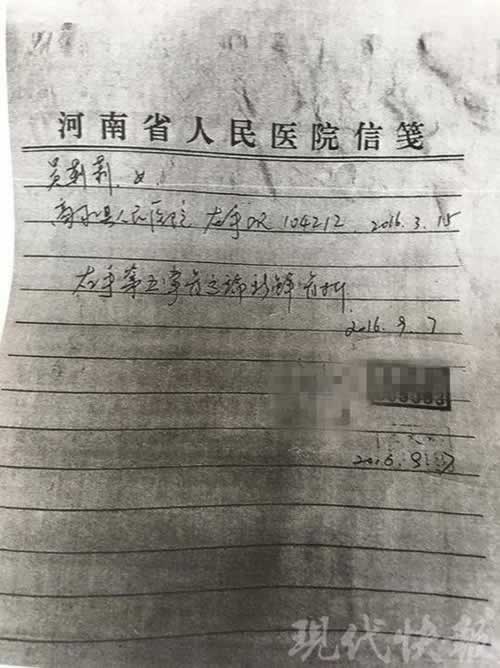 河南省人民医院信笺
吴莉莉，女
县人民医院 左手DR 104212 2016.3.15
左手第五掌骨远端骨折
2016.9.7
2016.9.7
现代快报